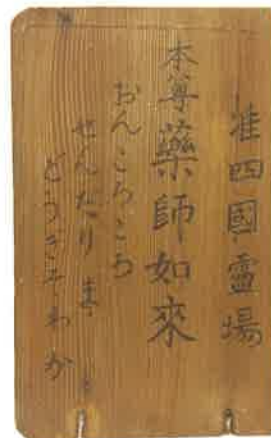 准四國霊場
本尊藥師如來
おんころころ
せんだりま
どうぎそわか